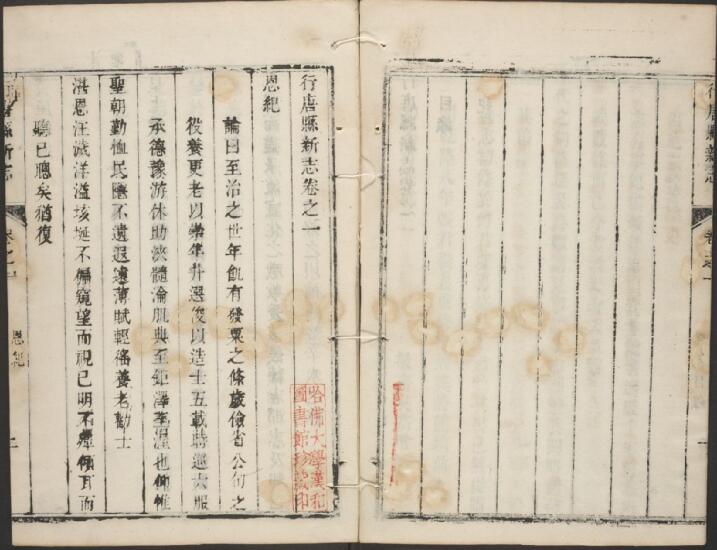 行唐縣新志
卷之一
行唐縣新志卷之一
恩紀
論曰至治之世年飢有發粟之條歲儉省公旬之
役養更老以崇年升選俊以造士五載時巡六服
承德豫游休助浹髓淪肌典至鉅澤至渥也仰惟
聖朝勤恤民隱不遺遐邇薄賦輕徭養老勸士
洪恩汪濊洋溢垓埏不偏窺望而視已明不殫傾耳而
聽已聰矣猶復
唐縣新志
卷之一
恩紀
一
哈佛大學漢和
圖書館珍藏印